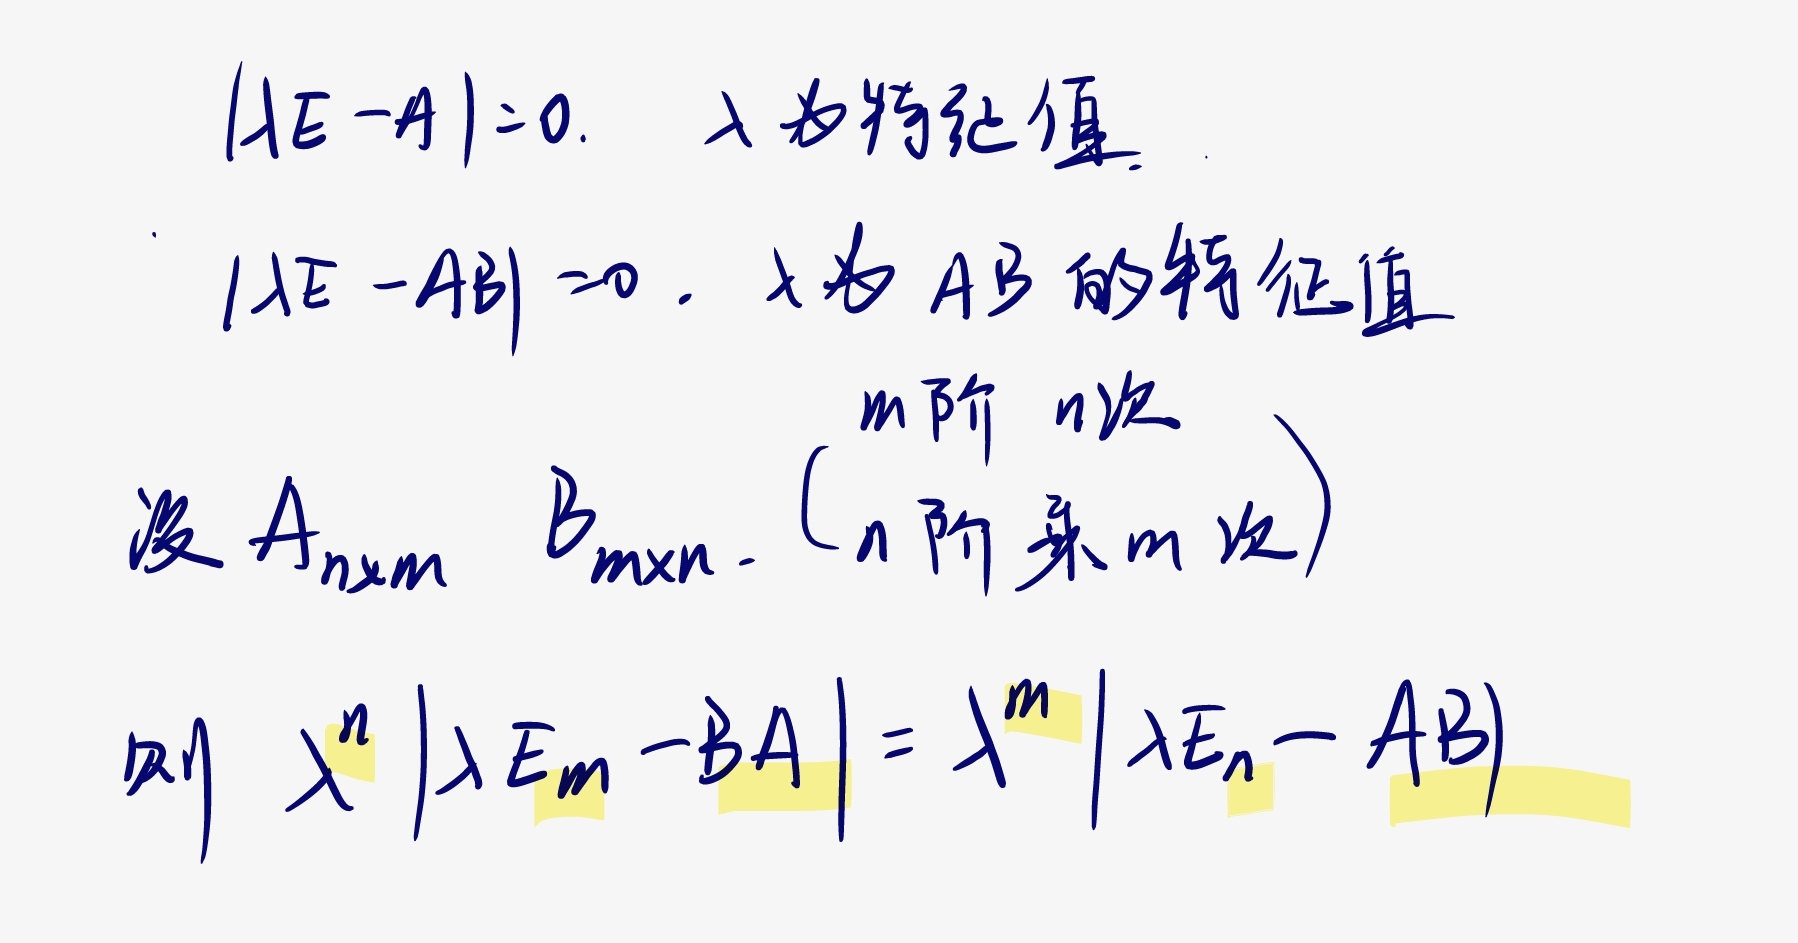 |λE-A|=0. λ为特征值.
|λE-AB|=0. λ为AB的特征值
m阶 n次
设 Aₙₓₘ Bₘₓₙ. (n阶乘m次)
则 λⁿ|λEₘ-BA|=λᵐ|λEₙ-AB|